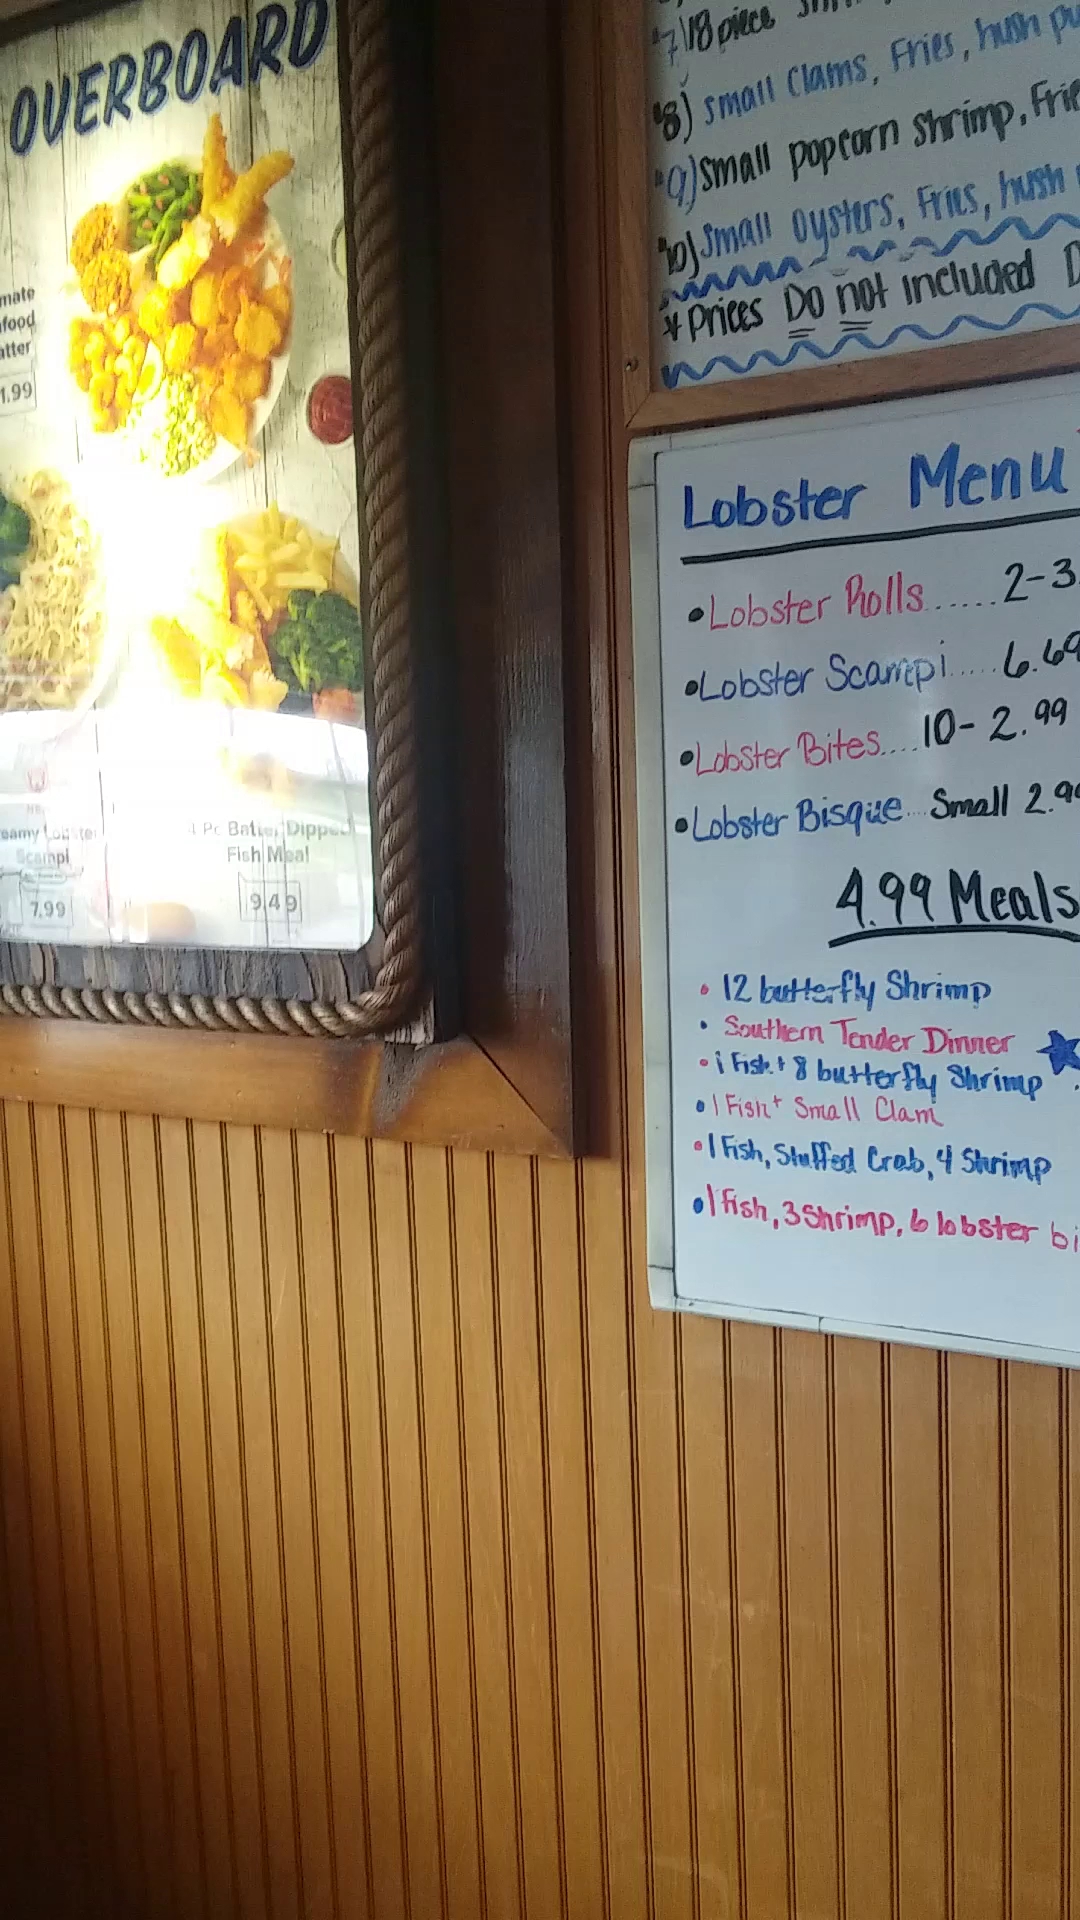 OVERBOARD
1.99
Scampi
7.99
4 Pc Batter Dipped
Fish Meal
9.49
7) 18 piece
8) small Clams, Fries, hush
9) small popcorn shrimp, Frie
10) small oysters, Fries, hush
* Prices Do not included
Lobster Menu
• Lobster Rolls...... 2-3.
• Lobster Scampi..... 6.69
• Lobster Bites.... 10-2.99
• Lobster Bisque... Small 2.99
4.99 Meals
• 12 butterfly Shrimp
• Southern Tender Dinner
• 1 Fish + 8 butterfly Shrimp
• 1 Fish + Small Clam
• 1 Fish, Stuffed Crab, 4 Shrimp
• 1 Fish, 3 Shrimp, 6 lobster bi